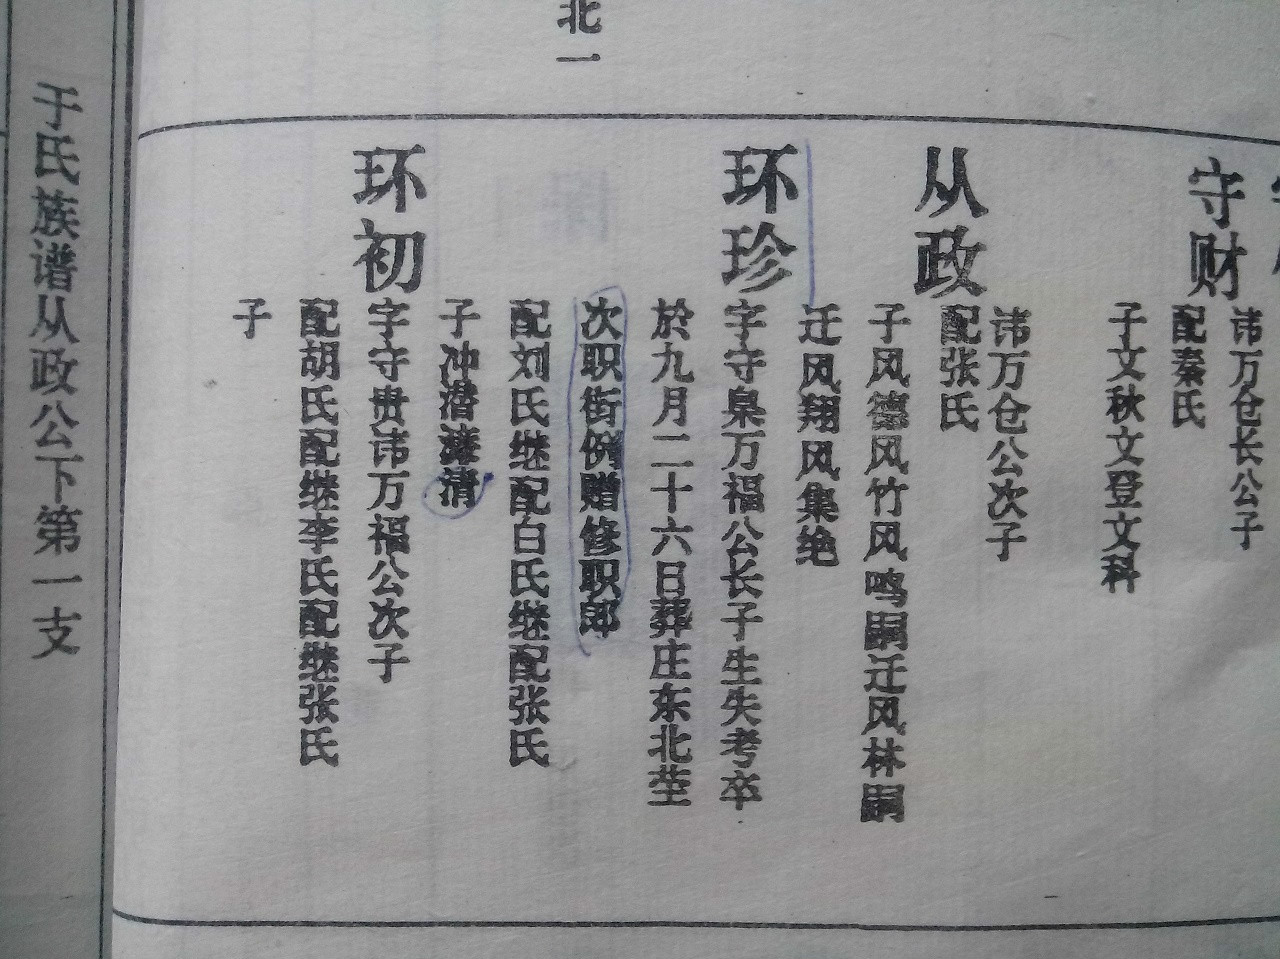 北一
守财
讳万仓长公子
配秦氏
子文秋文登文科
从政
讳万仓公次子
配张氏
子风德风竹风鸣嗣迁风林嗣
迁风翔风集绝
环珍
字守臬万福公长子生失考卒
於九月二十六日葬庄东北茔
次职街例赠修职郎
配刘氏继配白氏继配张氏
子冲潜清
环初
字守贵讳万福公次子
配胡氏配继李氏配继张氏
子
于氏族谱从政公下第一支